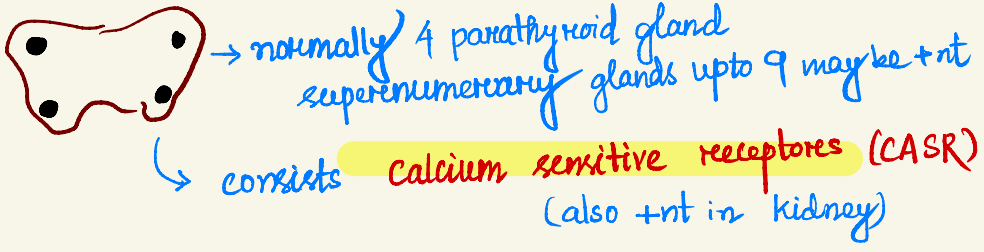 → normally 4 parathyroid gland
supernumerary glands upto 9 may be +nt
consists calcium sensitive receptores (CASR)
(also +nt in kidney)